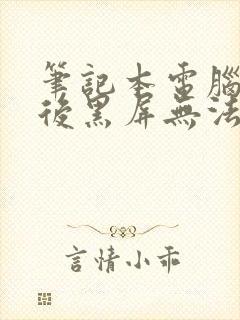 筆記本電腦
後黑屏無法
言情小乖